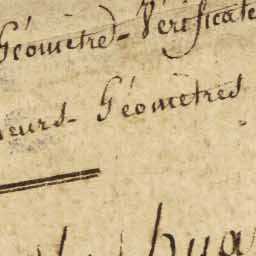 Géomètre-Vérificate
eurs-Géomètres